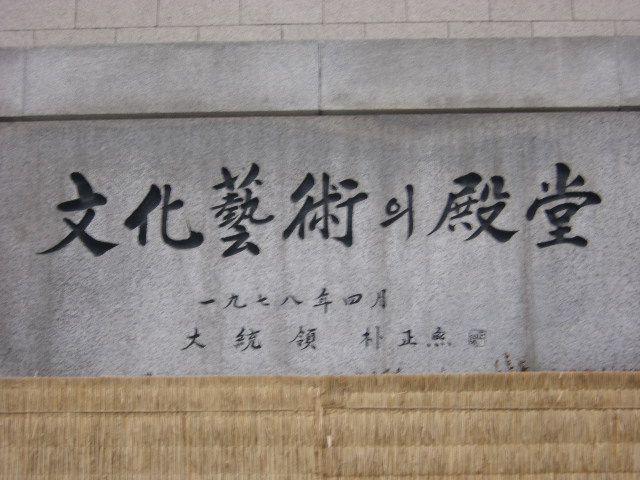 文化藝術의殿堂
一九七八年四月
大統領 朴正熙